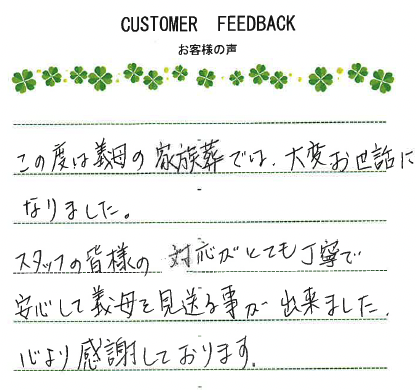 CUSTOMER FEEDBACK
お客様の声
この度は義母の家族葬では、大変お世話に
なりました。
スタッフの皆様の 対応がとても丁寧で
安心して義母を見送る事が出来ました。
心より感謝しております。